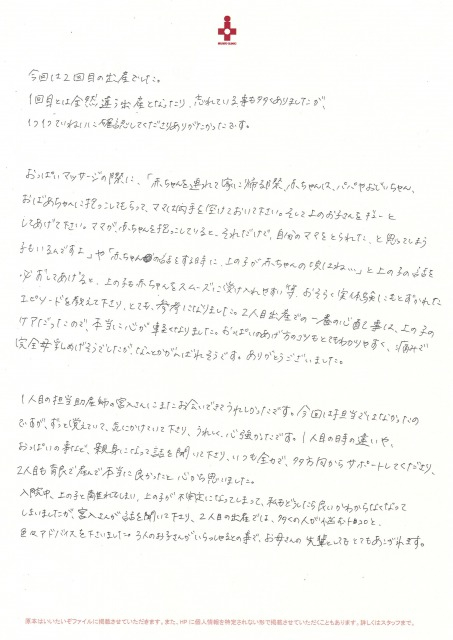 今回は2回目の出産でした。
1回目とは全然違う出産となったり、忘れている事も多くありましたが、
1つ1つていねいに確認してくださりありがたかったです。
おっぱいマッサージの際に、「赤ちゃんを連れて家に帰る際、赤ちゃんは、パパやおじいちゃん、
おばあちゃんに抱っこしてもらって、ママは両手を空けておいて下さい。そして上のお子さんをぎゅーと
してあげて下さい。ママが赤ちゃんを抱っこしていると、それだけで、自分のママをとられた、と思ってしまう
子もいるんですよ」や「赤ちゃんの話をする時に、上の子が赤ちゃんの頃はね…」と上の子の話を
必ずしてあげると、上の子も赤ちゃんをスムーズに受け入れやすい等、おそらく実体験にもとずかれた
エピソードを教えて下さり、とても参考になりました。2人目出産での一番の心配事は、上の子の
ケアだったので、本当に心が軽くなりました。おっぱいのあげ方のコツもとてもわかりやすく、痛みで
完全母乳めげそうでしたが、なんとかがんばれそうです。ありがとうございました。
1人目の担当助産師の宮入さんにまたお会いできてうれしかったです。今回は担当ではなかったの
ですが、ずっと覚えていて、気にかけていて下さり、うれしく、心強かったです。1人目の時の違いや、
おっぱいの事など、親身になって話を聞いて下さり、いつも全力で、多方向からサポートしてくださり、
2人目も育良で産んで本当に良かったと心から思いました。
入院中、上の子と離れてしまい、上の子が不安定になってしまって、私もどうしたら良いかわからなくなって
しまいましたが、宮入さんが話を聞いて下さり、2人目の出産では、多くの人が悩むトコロと、
色々アドバイスを下さいました。3人のお子さんがいらっしゃるとの事で、お母さんの先輩としてもとてもあこがれます。
原本はいいたいぞファイルに掲載させていただきます。また、HPに個人情報を特定されない形で掲載させていただくこともあります。詳しくはスタッフまで。